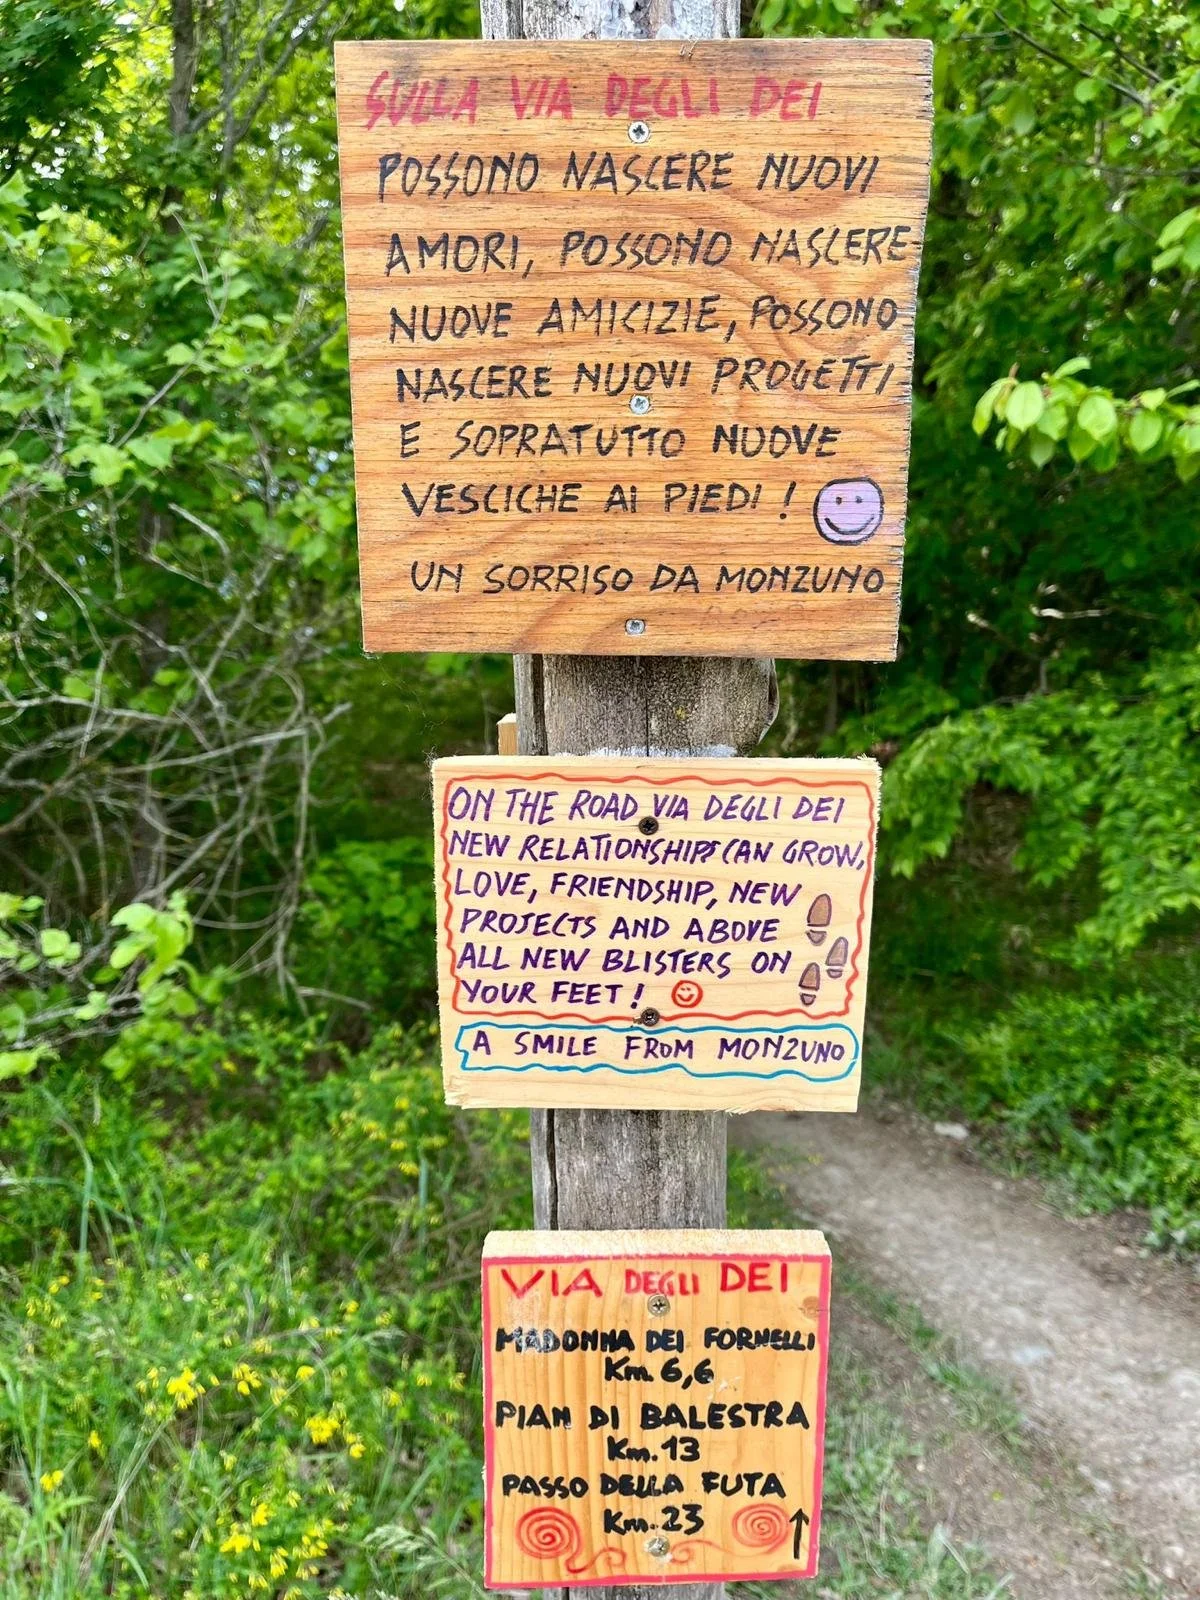 SULLA VIA DEGLI DEI
POSSONO NASCERE NUOVI
AMORI, POSSONO NASCERE
NUOVE AMICIZIE, POSSONO
NASCERE NUOVI PROGETTI
E SOPRATUTTO NUOVE
VESCICHE AI PIEDI!
UN SORRISO DA MONZUNO
ON THE ROAD VIA DEGLI DEI
NEW RELATIONSHIPS CAN GROW,
LOVE, FRIENDSHIP, NEW
PROJECTS AND ABOVE
ALL NEW BLISTERS ON
YOUR FEET!
A SMILE FROM MONZUNO
VIA DEGLI DEI
MADONNA DEI FORNELLI
Km. 6,6
PIAN DI BALESTRA
Km. 13
PASSO DELLA FUTA
Km. 23